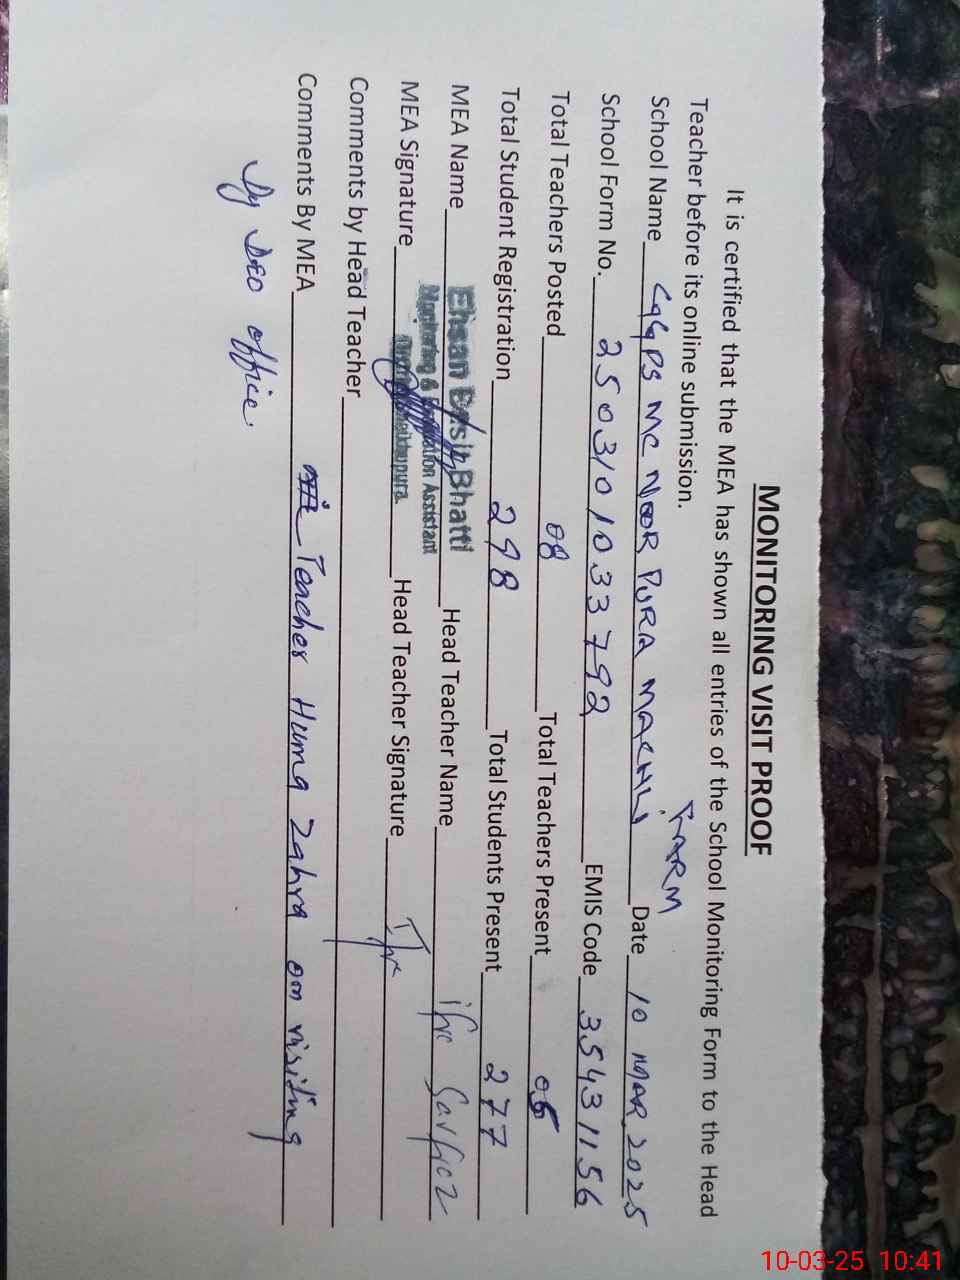 MONITORING VISIT PROOF
It is certified that the MEA has shown all entries of the School Monitoring Form to the Head
Teacher before its online submission.
FARM
School Name GGPS MC NOOR PURA MACHLI Date 10 MAR 2025
School Form No. 2503101033792 EMIS Code 35431156
Total Teachers Posted 08 Total Teachers Present
Total Student Registration 298 Total Students Present 277
MEA Name Ehsan Bhatti Head Teacher Name
Monitoring & Evaluation Assistant
MEA Signature Head Teacher Signature
Comments by Head Teacher
Comments By MEA Teacher Huma Zahra on visiting
Dy DEO office.
10-03-25 10:41